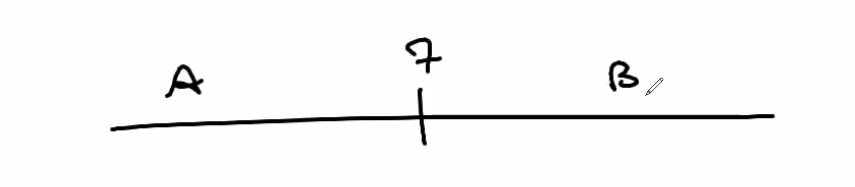 A 7 B